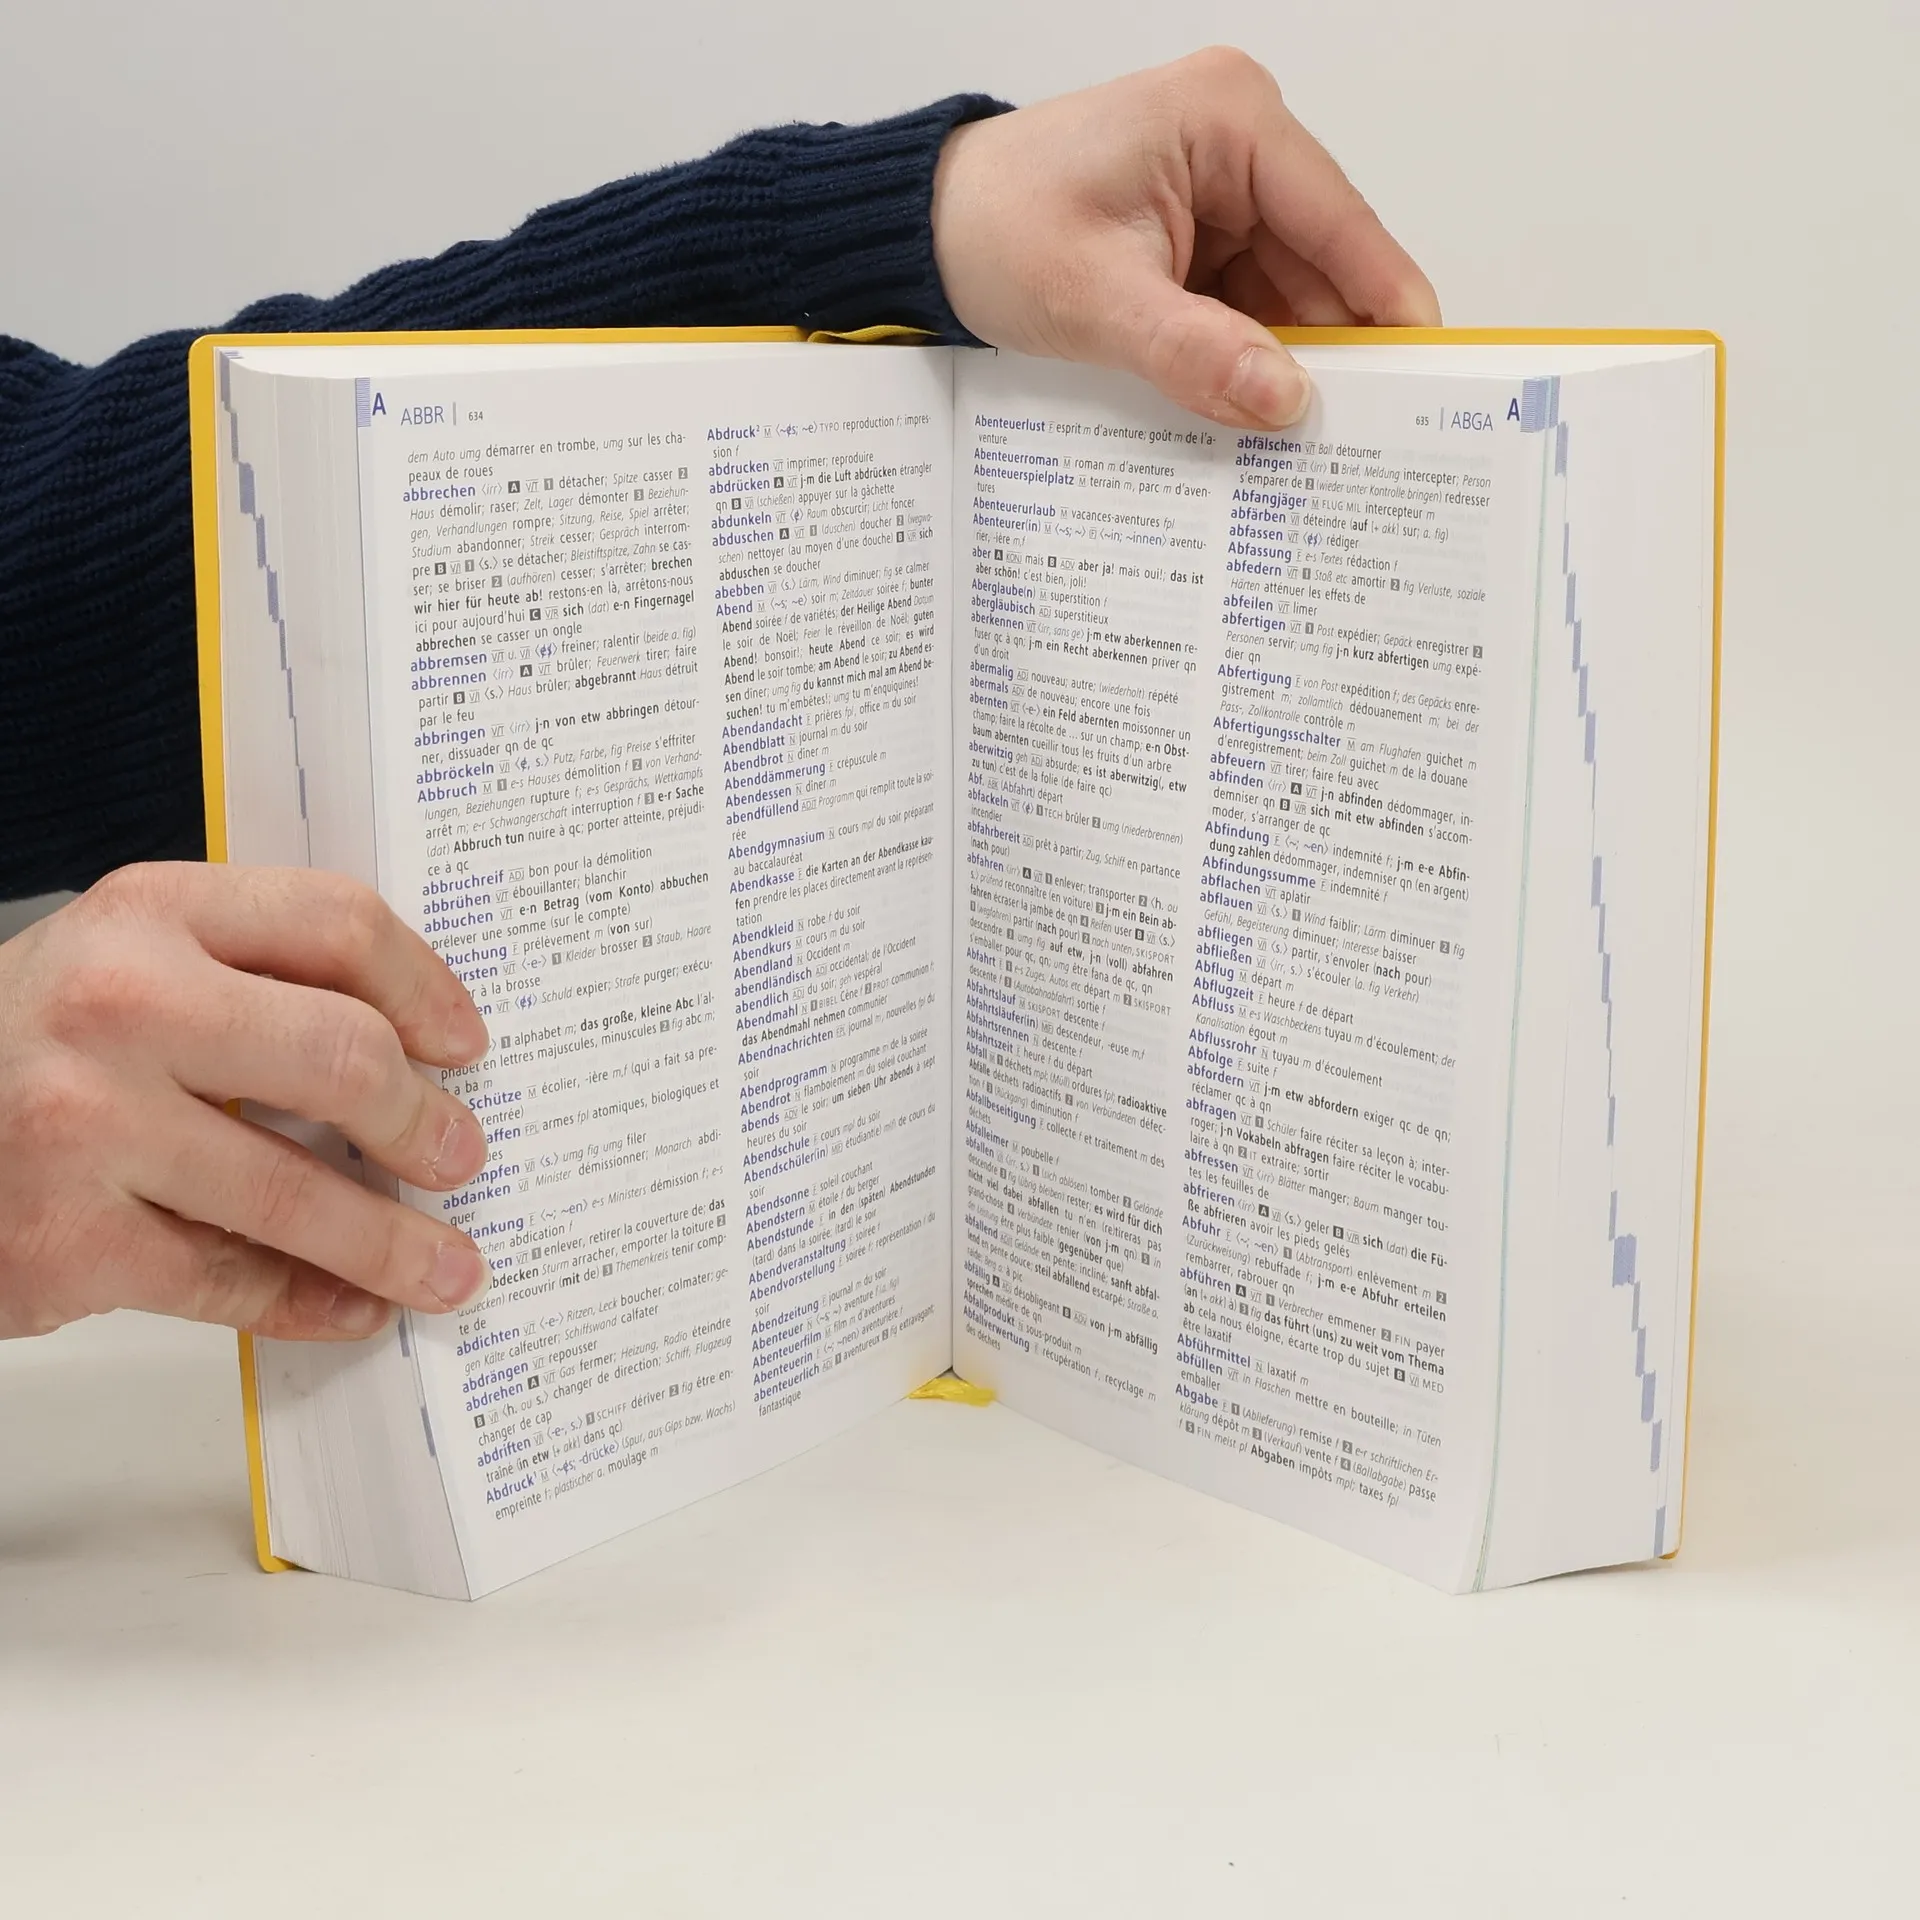 A ABBR | 634
dem Auto umg démarrer en trombe, umg sur les cha-
peaux de roues
abbrechen ⟨irr⟩ A V/T 1 détacher; Spitze casser 2
Haus démolir; raser; Zelt, Lager démonter 3 Beziehun-
gen, Verhandlungen rompre; Sitzung, Reise, Spiel arrêter;
Studium abandonner; Streik cesser; Gespräch interrom-
pre B V/I 1 ⟨s.⟩ se détacher; Bleistiftspitze, Zahn se cas-
ser; se briser 2 (aufhören) cesser; s'arrêter; brechen
wir hier für heute ab! restons-en là, arrêtons-nous
ici pour aujourd'hui C V/R sich (dat) e-n Fingernagel
abbrechen se casser un ongle
abbremsen V/T u. V/I freiner; ralentir (beide a. fig)
abbrennen ⟨irr⟩ A V/T brûler; Feuerwerk tirer; faire
partir B V/I ⟨s.⟩ Haus brûler; abgebrannt Haus détruit
par le feu
abbringen V/T ⟨irr⟩ j-n von etw abbringen détour-
ner, dissuader qn de qc
abbröckeln V/I Putz, Farbe, fig Preise s'effriter
Abbruch M 1 e-s Hauses démolition f 2 von Verhand-
lungen, Beziehungen rupture f; e-s Gesprächs, Wettkampfs
arrêt m; e-r Schwangerschaft interruption f 3 e-r Sache
(dat) Abbruch tun nuire à qc; porter atteinte, préjudi-
ce à qc
abbruchreif ADJ bon pour la démolition
abbrühen V/T ébouillanter; blanchir
abbuchen V/T e-n Betrag (vom Konto) abbuchen
prélever une somme (sur le compte)
buchung F prélèvement m (von sur)
ürsten V/T ⟨-e-⟩ 1 Kleider brosser 2 Staub, Haare
r à la brosse
en V/T Schuld expier; Strafe purger; exécu-
1 alphabet m; das große, kleine Abc l'al-
phabet en lettres majuscules, minuscules 2 fig abc m;
b a ba m
Schütze M écolier, -ière m,f (qui a fait sa pre-
rentrée)
affen FPL armes fpl atomiques, biologiques et
ues
mpfen V/I ⟨s.⟩ umg fig umg filer
abdanken V/I Minister démissionner; Monarch abdi-
quer
dankung F ⟨~; ~en⟩ e-s Ministers démission f; e-s
rchen abdication f
ken V/T 1 enlever, retirer la couverture de; das
bdecken Sturm arracher, emporter la toiture 2
(zudecken) recouvrir (mit de) 3 Themenkreis tenir comp-
te de
abdichten V/T ⟨-e-⟩ Ritzen, Leck boucher; colmater; ge-
gen Kälte calfeutrer; Schiffswand calfater
abdrängen V/T repousser
abdrehen A V/T Gas fermer; Heizung, Radio éteindre
B V/I ⟨h. ou s.⟩ changer de direction; Schiff, Flugzeug
changer de cap
abdriften V/I ⟨-e-, s.⟩ 1 SCHIFF dériver 2 fig être en-
traîné (in etw (+ akk) dans qc)
Abdruck¹ M ⟨~es; -drücke⟩ (Spur, aus Gips bzw. Wachs)
empreinte f; plastischer a. moulage m
Abdruck² M ⟨~es; ~e⟩ TYPO reproduction f; impres-
sion f
abdrucken V/T imprimer; reproduire
abdrücken A V/T j-m die Luft abdrücken étrangler
qn B V/I (schießen) appuyer sur la gâchette
abdunkeln V/T Raum obscurcir; Licht foncer
abduschen A V/T 1 (duschen) doucher 2 (wegwa-
schen) nettoyer (au moyen d'une douche) B V/R sich
abduschen se doucher
abebben V/I ⟨s.⟩ Lärm, Wind diminuer; fig se calmer
Abend M ⟨~s; ~e⟩ soir m; Zeitdauer soirée f; bunter
Abend soirée f de variétés; der Heilige Abend Datum
le soir de Noël; Feier le réveillon de Noël; guten
Abend! bonsoir!; heute Abend ce soir; es wird
Abend le soir tombe; am Abend le soir; zu Abend es-
sen dîner; umg fig du kannst mich mal am Abend be-
suchen! tu m'embêtes!; umg tu m'enquiquines!
Abendandacht F prières fpl, office m du soir
Abendblatt N journal m du soir
Abendbrot N dîner m
Abenddämmerung F crépuscule m
Abendessen N dîner m
abendfüllend ADJT Programm qui remplit toute la soi-
rée
Abendgymnasium N cours mpl du soir préparant
au baccalauréat
Abendkasse F die Karten an der Abendkasse kau-
fen prendre les places directement avant la représen-
tation
Abendkleid N robe f du soir
Abendkurs M cours m du soir
Abendland N Occident m
abendländisch ADJ occidental; de l'Occident
abendlich ADJ du soir; geh vespéral
Abendmahl N 1 BIBEL Cène f 2 PROT communion f;
das Abendmahl nehmen communier
Abendnachrichten FPL journal m, nouvelles fpl du
soir
Abendprogramm N programme m de la soirée
Abendrot N flamboiement m du soleil couchant
abends ADV le soir; um sieben Uhr abends à sept
heures du soir
Abendschule F cours mpl du soir
Abendschüler(in) M(F) étudiant(e) m(f) de cours du
soir
Abendsonne F soleil couchant
Abendstern M étoile f du berger
Abendstunde F in den (späten) Abendstunden
(tard) dans la soirée; (tard) le soir
Abendveranstaltung F soirée f
Abendvorstellung F soirée f; représentation f du
soir
Abendzeitung F journal m du soir
Abenteuer N ⟨~s; ~⟩ aventure f (a. fig)
Abenteuerfilm M film m d'aventures
Abenteuerin F ⟨~; ~nen⟩ aventurière f
abenteuerlich ADJ 1 aventureux 2 fig extravagant;
fantastique
635 | ABGA A
Abenteuerlust F esprit m d'aventure; goût m de l'a-
venture
Abenteuerroman M roman m d'aventures
Abenteuerspielplatz M terrain m, parc m d'aven-
tures
Abenteuerurlaub M vacances-aventures fpl
Abenteurer(in) M ⟨~s; ~⟩ F ⟨~in; ~innen⟩ aventu-
rier, -ière m,f
aber A KONJ mais B ADV aber ja! mais oui!; das ist
aber schön! c'est bien, joli!
Aberglaube(n) M superstition f
abergläubisch ADJ superstitieux
aberkennen V/T ⟨irr, sans ge⟩ j-m etw aberkennen re-
fuser qc à qn; j-m ein Recht aberkennen priver qn
d'un droit
abermalig ADJ nouveau; autre; (wiederholt) répété
abermals ADV de nouveau; encore une fois
abernten V/T ⟨-e-⟩ ein Feld abernten moissonner un
champ; faire la récolte de ... sur un champ; e-n Obst-
baum abernten cueillir tous les fruits d'un arbre
aberwitzig geh ADJ absurde; es ist aberwitzig(, etw
zu tun) c'est de la folie (de faire qc)
Abf. ABK (Abfahrt) départ
abfackeln V/T 1 TECH brûler 2 umg (niederbrennen)
incendier
abfahrbereit ADJ prêt à partir; Zug, Schiff en partance
(nach pour)
abfahren ⟨irr⟩ A V/T 1 enlever; transporter 2 ⟨h. ou
s.⟩ prüfend reconnaître (en voiture) 3 j-m ein Bein ab-
fahren écraser la jambe de qn 4 Reifen user B V/I ⟨s.⟩
1 (wegfahren) partir (nach pour) 2 nach unten, SKISPORT
descendre 3 umg fig auf etw, j-n (voll) abfahren
s'emballer pour qc, qn; umg être fana de qc, qn
Abfahrt F 1 e-s Zuges, Autos etc départ m 2 SKISPORT
descente f 3 (Autobahnabfahrt) sortie f
Abfahrtslauf M SKISPORT descente f
Abfahrtsläufer(in) M(F) descendeur, -euse m,f
Abfahrtsrennen N descente f
Abfahrtszeit F heure f du départ
Abfall M 1 déchets mpl; (Müll) ordures fpl; radioaktive
Abfälle déchets radioactifs 2 von Verbündeten défec-
tion f 3 (Rückgang) diminution f
Abfallbeseitigung F collecte f et traitement m des
déchets
Abfalleimer M poubelle f
abfallen V/I ⟨irr, s.⟩ 1 (sich ablösen) tomber 2 Gelände
descendre 3 fig (übrig bleiben) rester; es wird für dich
nicht viel dabei abfallen tu n'en (re)tireras pas
grand-chose 4 Verbündete renier (von j-m qn) 5 in
der Leistung être plus faible (gegenüber que)
abfallend ADJT Gelände en pente; incliné; sanft abfal-
lend en pente douce; steil abfallend escarpé; Straße a.
raide; Berg a. à pic
abfällig A ADJ désobligeant B ADV von j-m abfällig
sprechen médire de qn
Abfallprodukt N sous-produit m
Abfallverwertung F récupération f, recyclage m
des déchets
abfälschen V/T Ball détourner
abfangen V/T ⟨irr⟩ 1 Brief, Meldung intercepter; Person
s'emparer de 2 (wieder unter Kontrolle bringen) redresser
Abfangjäger M FLUG MIL intercepteur m
abfärben V/I déteindre (auf (+ akk) sur; a. fig)
abfassen V/T rédiger
Abfassung F e-s Textes rédaction f
abfedern V/T 1 Stoß etc amortir 2 fig Verluste, soziale
Härten atténuer les effets de
abfeilen V/T limer
abfertigen V/T 1 Post expédier; Gepäck enregistrer 2
Personen servir; umg fig j-n kurz abfertigen umg expé-
dier qn
Abfertigung F von Post expédition f; des Gepäcks enre-
gistrement m; zollamtlich dédouanement m; bei der
Pass-, Zollkontrolle contrôle m
Abfertigungsschalter M am Flughafen guichet m
d'enregistrement; beim Zoll guichet m de la douane
abfeuern V/T tirer; faire feu avec
abfinden ⟨irr⟩ A V/T j-n abfinden dédommager, in-
demniser qn B V/R sich mit etw abfinden s'accom-
moder, s'arranger de qc
Abfindung F ⟨~; ~en⟩ indemnité f; j-m e-e Abfin-
dung zahlen dédommager, indemniser qn (en argent)
Abfindungssumme F indemnité f
abflachen V/T aplatir
abflauen V/I ⟨s.⟩ 1 Wind faiblir; Lärm diminuer 2 fig
Gefühl, Begeisterung diminuer; Interesse baisser
abfliegen V/I ⟨s.⟩ partir, s'envoler (nach pour)
abfließen V/I ⟨irr, s.⟩ s'écouler (a. fig Verkehr)
Abflug M départ m
Abflugzeit F heure f de départ
Abfluss M e-s Waschbeckens tuyau m d'écoulement; der
Kanalisation égout m
Abflussrohr N tuyau m d'écoulement
Abfolge F suite f
abfordern V/T j-m etw abfordern exiger qc de qn;
réclamer qc à qn
abfragen V/T 1 Schüler faire réciter sa leçon à; inter-
roger; j-n Vokabeln abfragen faire réciter le vocabu-
laire à qn 2 IT extraire; sortir
abfressen V/T ⟨irr⟩ Blätter manger; Baum manger tou-
tes les feuilles de
abfrieren ⟨irr⟩ A V/I ⟨s.⟩ geler B V/R sich (dat) die Fü-
ße abfrieren avoir les pieds gelés
Abfuhr F ⟨~; ~en⟩ 1 (Abtransport) enlèvement m 2
(Zurückweisung) rebuffade f; j-m e-e Abfuhr erteilen
rembarrer, rabrouer qn
abführen A V/T 1 Verbrecher emmener 2 FIN payer
(an (+ akk) à) 3 fig das führt (uns) zu weit vom Thema
ab cela nous éloigne, écarte trop du sujet B V/I MED
être laxatif
Abführmittel N laxatif m
abfüllen V/T in Flaschen mettre en bouteille; in Tüten
emballer
Abgabe F 1 (Ablieferung) remise f 2 e-r schriftlichen Er-
klärung dépôt m 3 (Verkauf) vente f 4 (Ballabgabe) passe
f 5 FIN meist pl Abgaben impôts mpl; taxes fpl